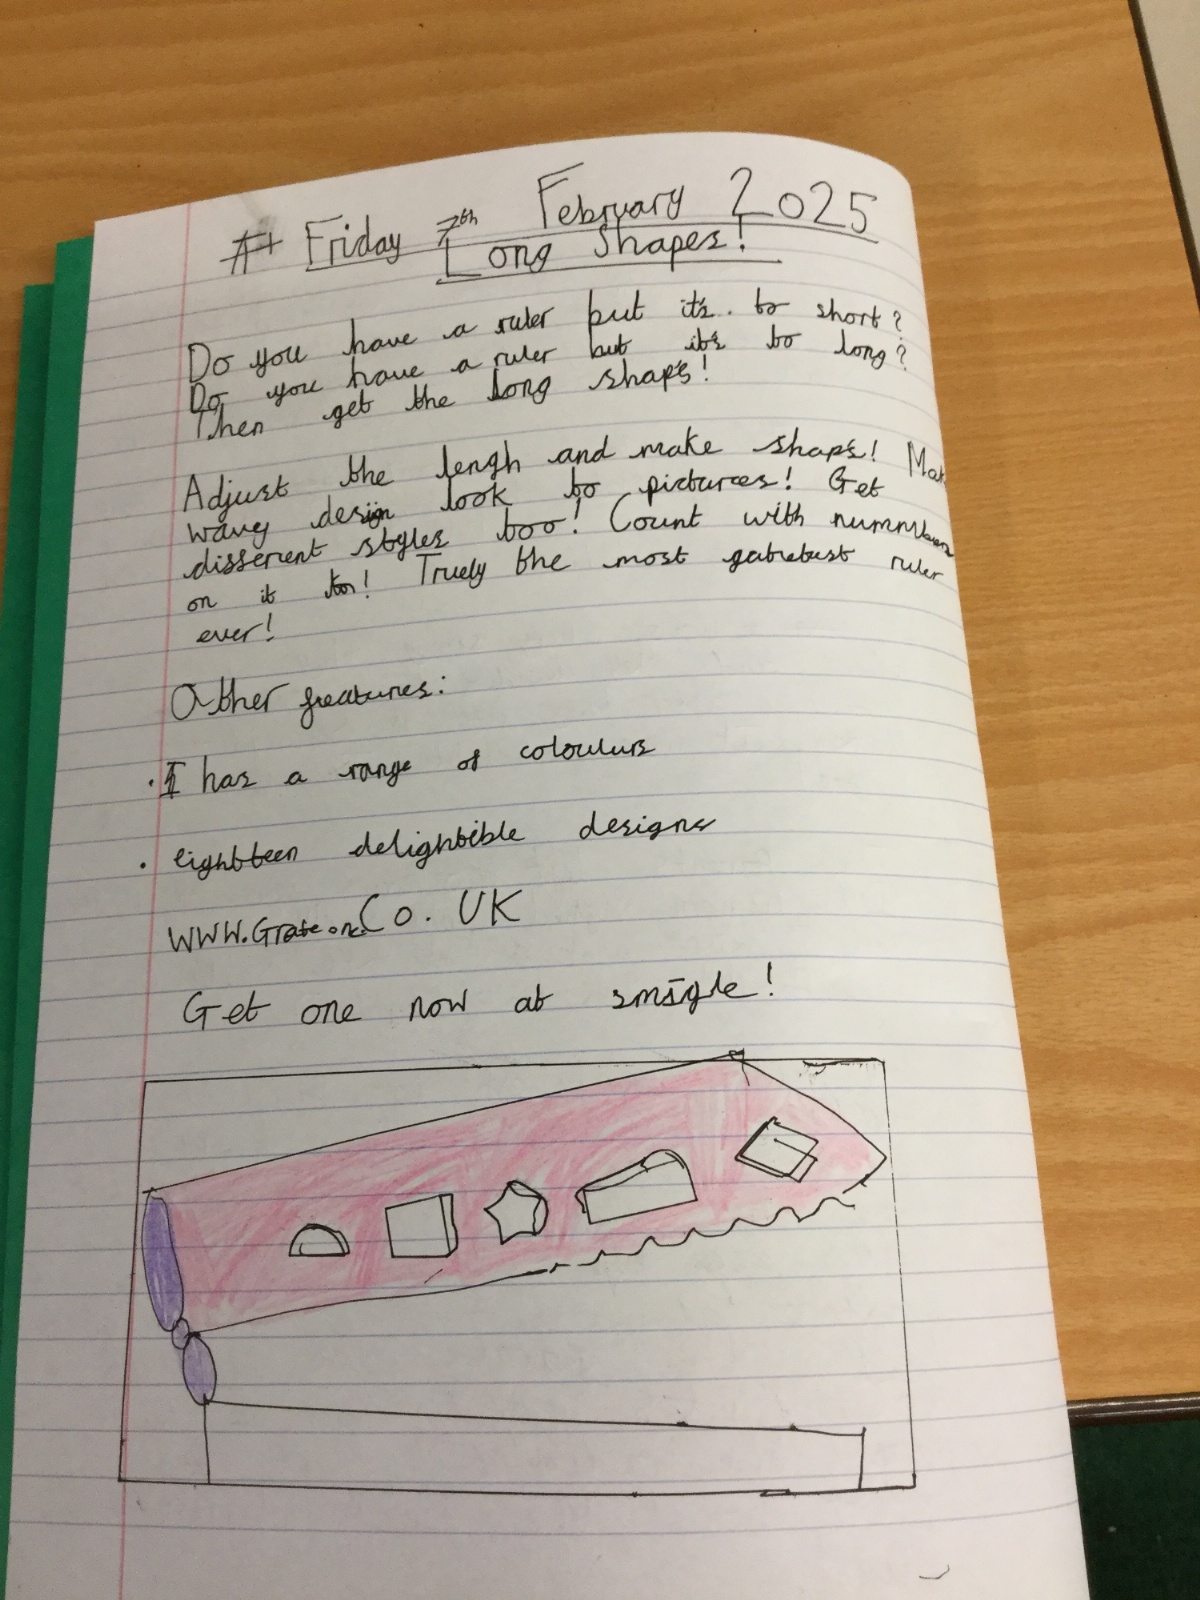 Friday 7th February 2025
Long Shapes!
Do you have a ruler but it's to short?
Do you have a ruler but it's to long?
Then get the long shap's!
Adjust the lengh and make shap's! Mak
wavy design look to pictures! Get
disserent styles too! Count with nummbers
on it to! Truely the most ruler
ever!
Other freatures:
· I has a range of coloulurs
· eighteen delightible designs
WWW.Grate on.Co.UK
Get one now at smigle!